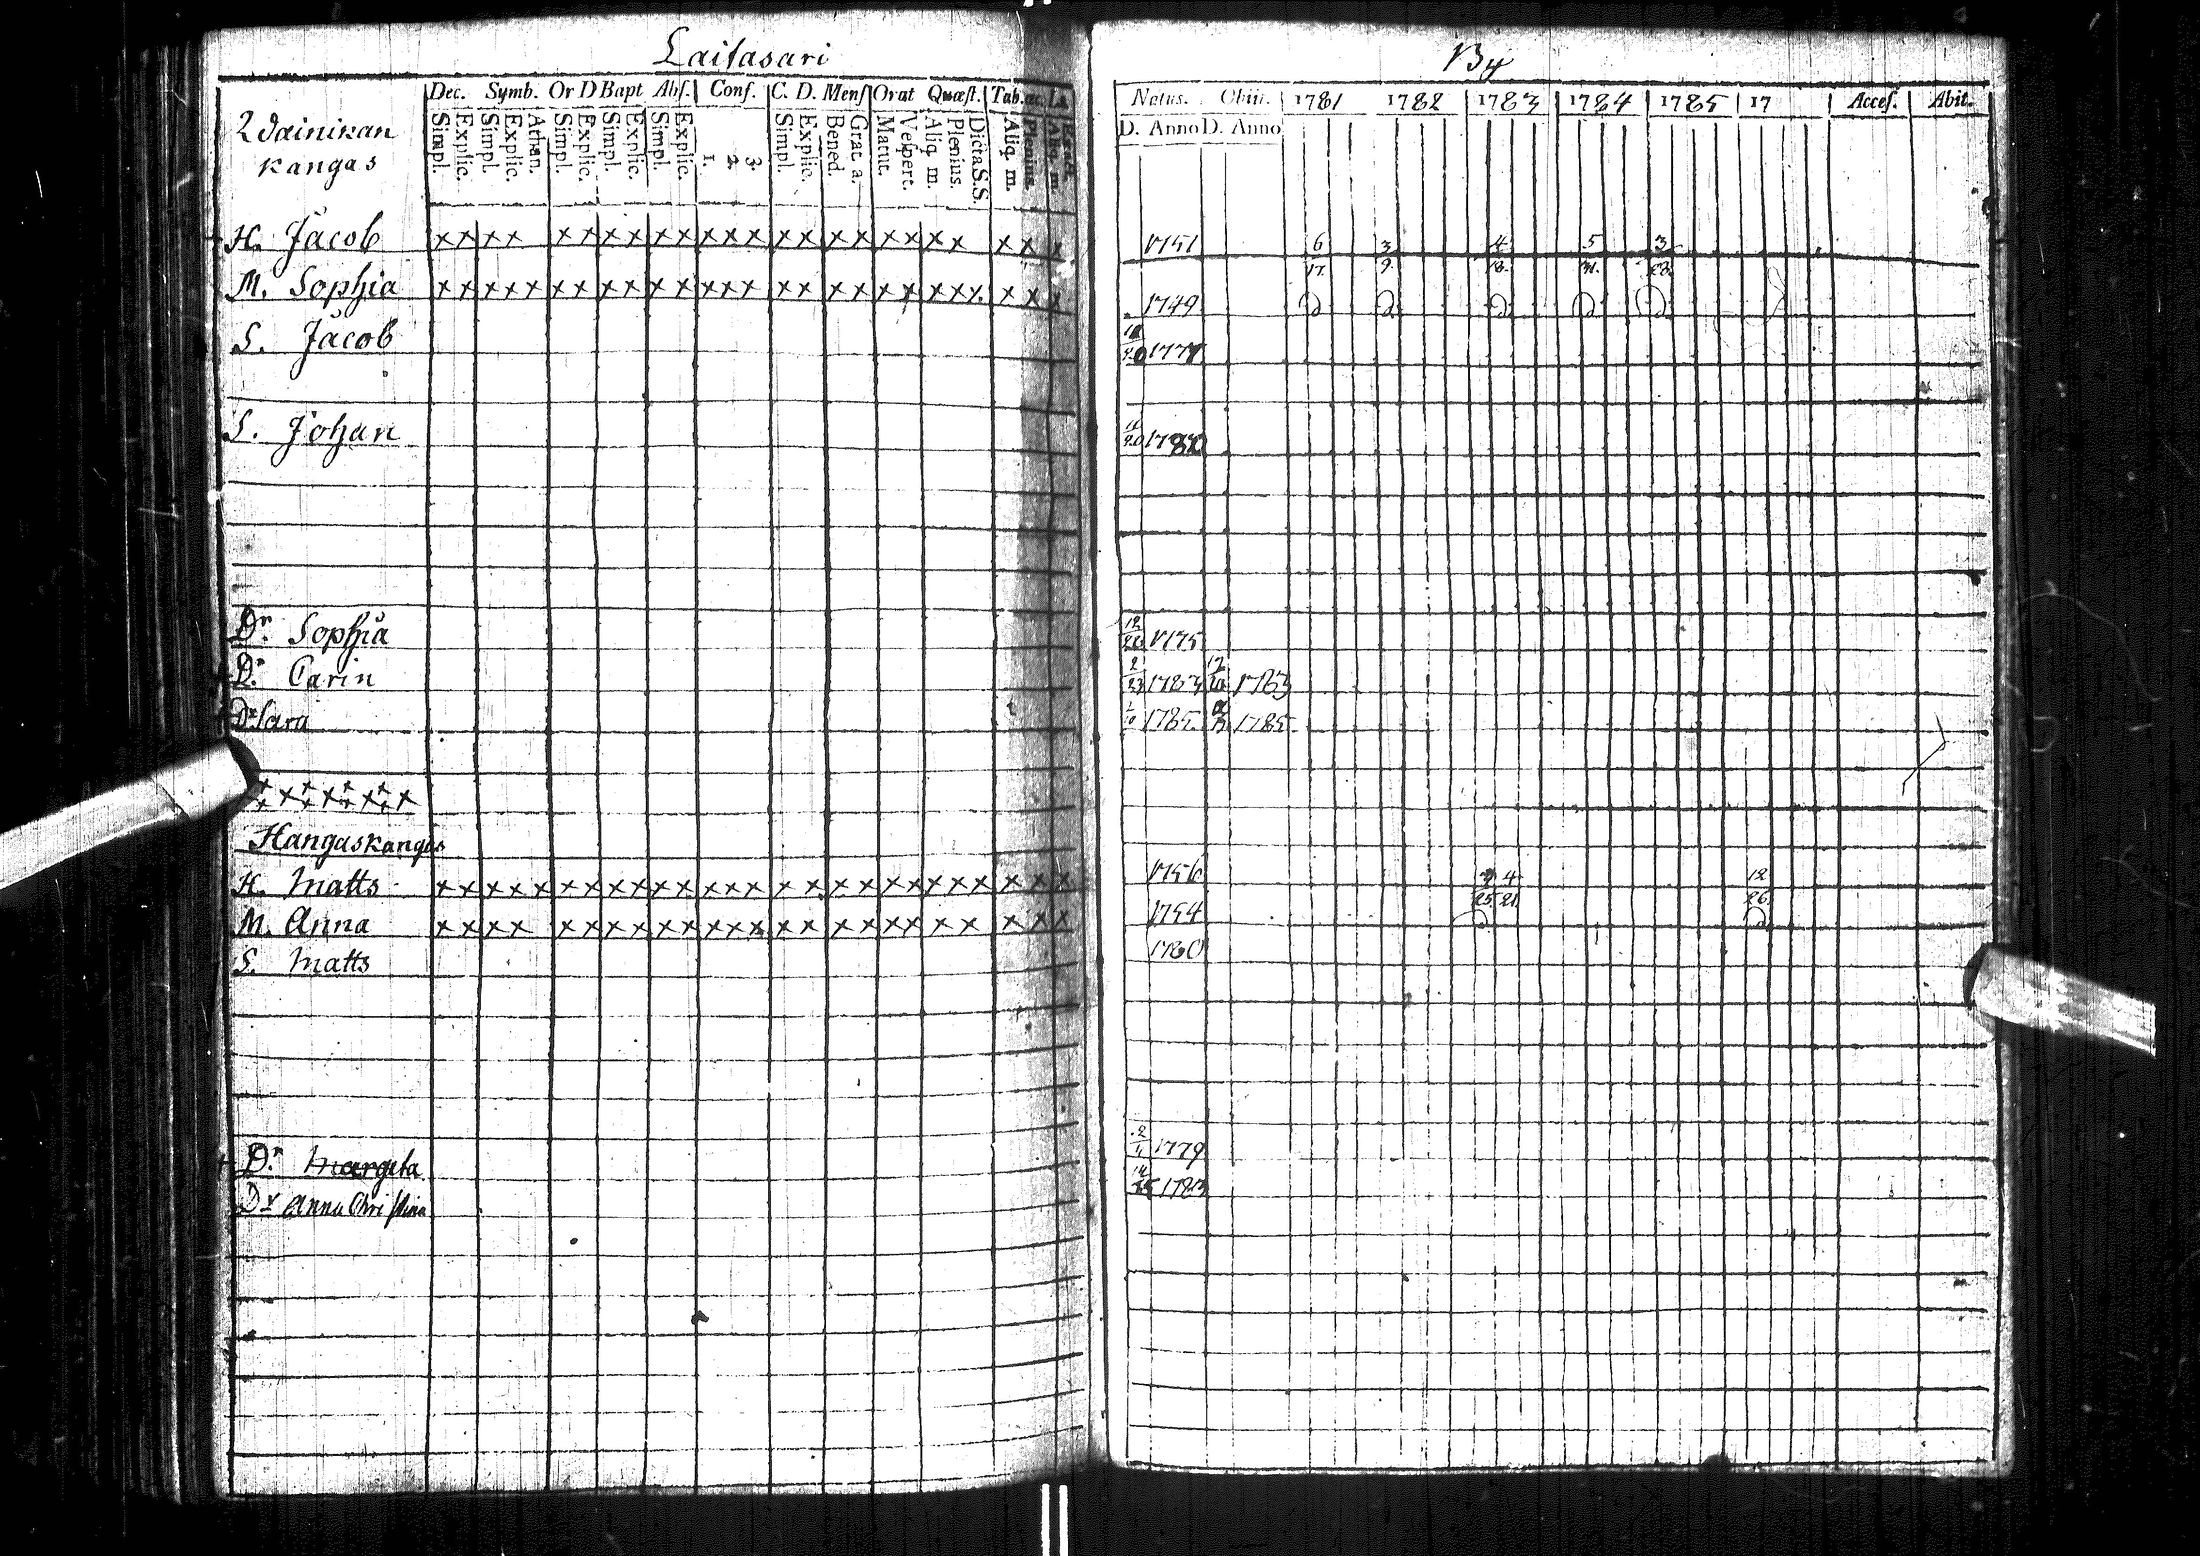 Laitasari By
Dec. Symb. Or D Bapt Abs. Conf. C. D. Mens Orat Quæst. Tab.
Natus. Obiit. 1781 1782 1783 1784 1785 17 Acces. Abit.
Simpl. Explic. Simpl. Explic. Athan. Simpl. Explic. Simpl. Explic. Simpl. Explic. 1. 2. 3. Simpl. Explic. Bened. Grat. a. Matut. Vespert. Aliq. m. Plenius. Dicta S.S. Aliq. m. Plenius.
D. Anno D. Anno
Wainikan
kangas
H. Jacob x x x x x x x x x x x x x x x x x x x x x x x x 1751 6/17. 3/9. 4/18. 5/31. 3/28.
M. Sophia x x x x x x x x x x x x x x x x x x x x x x x x x x 1749
S. Jacob 1777
S. Johan 1780
Dr. Sophia 12/26 1775
Dr. Carin 2/23 1783 1783
Dr Sara 1/10 1785. 1785.
Hangaskangas
H. Matts x x x x x x x x x x x x x x x x x x x x x x x x x x 1756 4/21 12/26.
M. Anna x x x x x x x x x x x x x x x x x x x x x x x x 1754
S. Matts 1780
Dr. Margeta 1779
Dr Anna Christina 1783